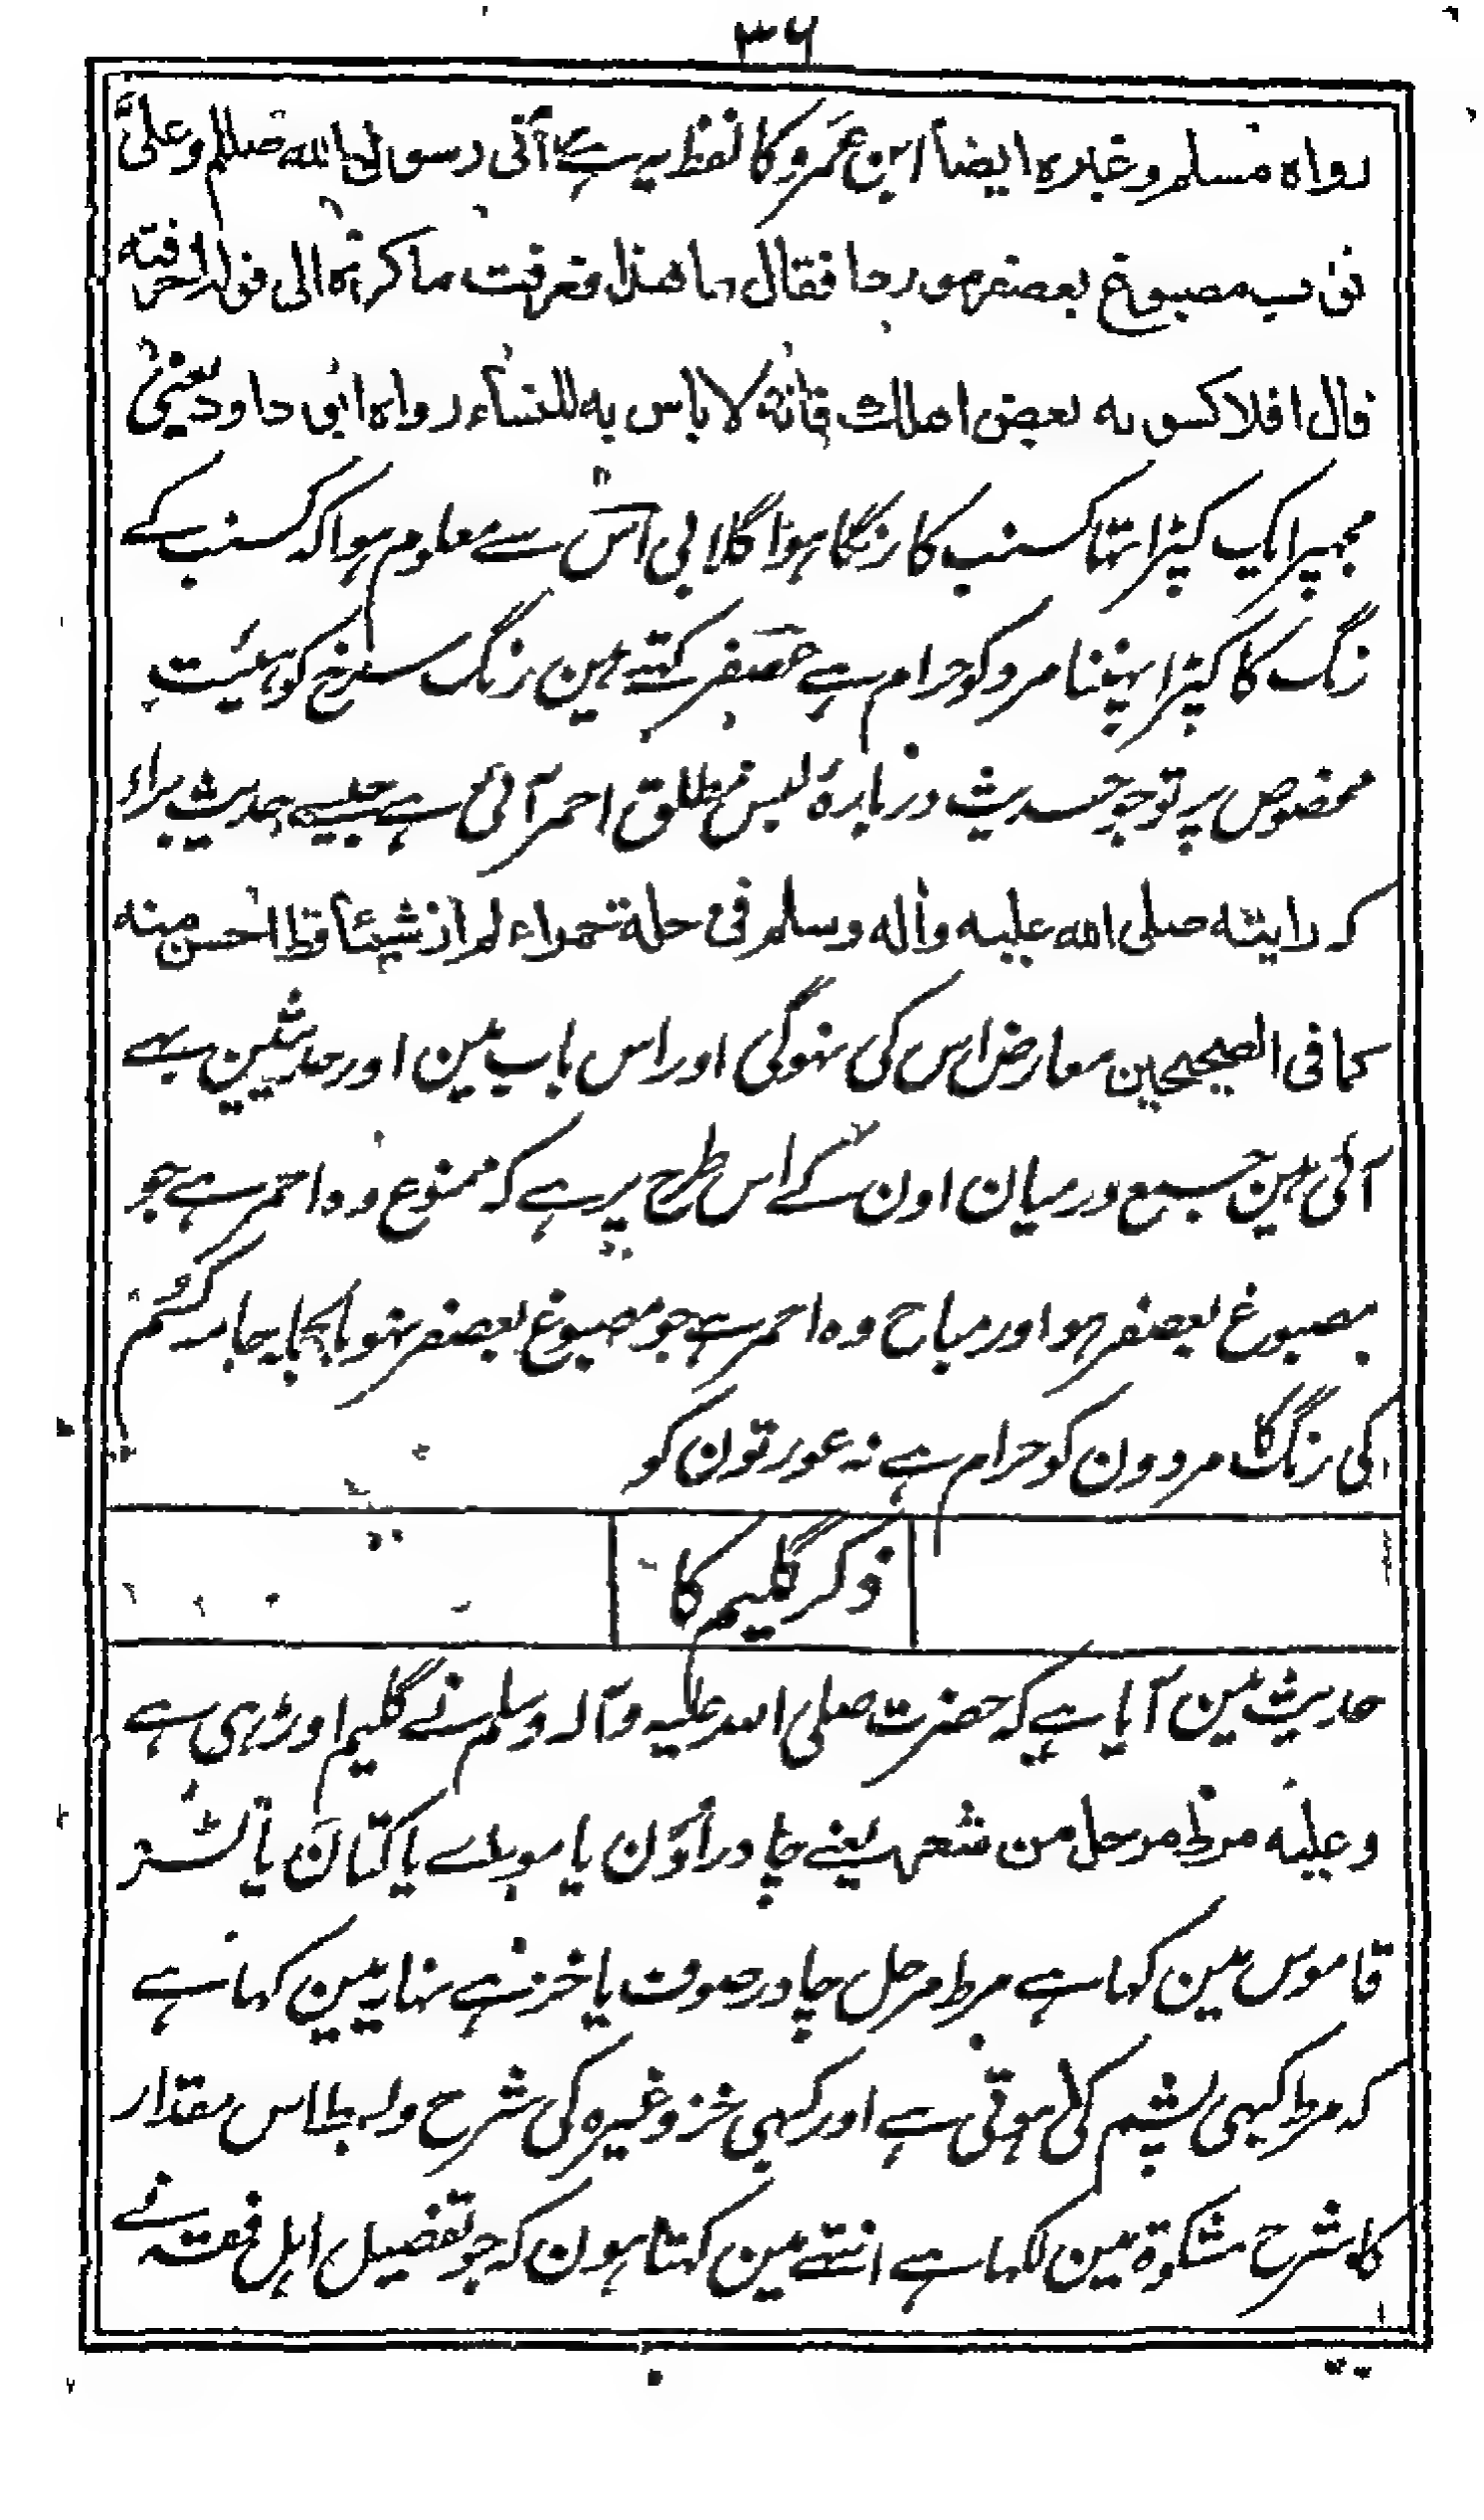 ۳۶
رواہ مسلم وغیرہ ایضاً ابن عمرو کا لفظ یہ ہے اٰنی رسول اللہ صللم وعلیّ
ثوب مصبوغ بعصفر موردا فقال ما ھذا فعرفت ماکرہ الی قولہ احرقتہ
قال افلا کسوتہ بعض اھلک فانہ لا باس بہ للنساء رواہ ابو داود یعنی
مجہپر ایک کپڑا تہا کسنب کا رنگا ہوا گلابی اس سے معلوم ہوا کہ کسنب کے
رنگ کا کپڑا پہننا مرد کو حرام ہے عصفر کہتے ہین رنگ سرخ کو ہیئت
مخصوص پر تو جو حدیث دربارۂ لبس مطلق احمر آئی ہے جیسے حدیث براء
کہ رایتہ صلی اللہ علیہ واٰلہ وسلم فی حلۃ حمراء لم ار شیئا قط احسن منہ
کما فی الصحیحین معارض اس کی نہوگی اور اس باب مین اور حدیثین بہے
آئی ہین جمع درمیان اون کے اس طرح پر ہے کہ ممنوع وہ احمر ہے جو
مصبوغ بعصفر ہو اور مباح وہ احمر ہے جو مصبوغ بعصفر نہو بالجملہ جامہ کسم
کی رنگ کا مردون کو حرام ہے نہ عورتون کو
ذکر گلیم کا
حدیث مین آیا ہے کہ حضرت صلی اللہ علیہ وآلہ وسلم نے گلیم اوڑہی ہے
وعلیہ مرط مرحل من شعر یعنے چادر اون یا یا کتان یا
قاموس مین کہا ہے مرط مرحل چادر صوف یا خز ہے نہایہ مین کہا ہے
کہ مرط کبہی پشم کی ہوتی ہے اور کبہی خز وغیرہ کی شرح ولبط اس مقدار
کا شرح مشکوۃ مین لکہا ہے انتہے مین کہتا ہون کہ جو تفصیل اہل فقہ نے